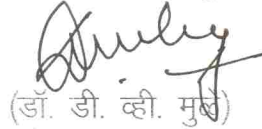 (डॉ. डी. व्ही. मुळे)